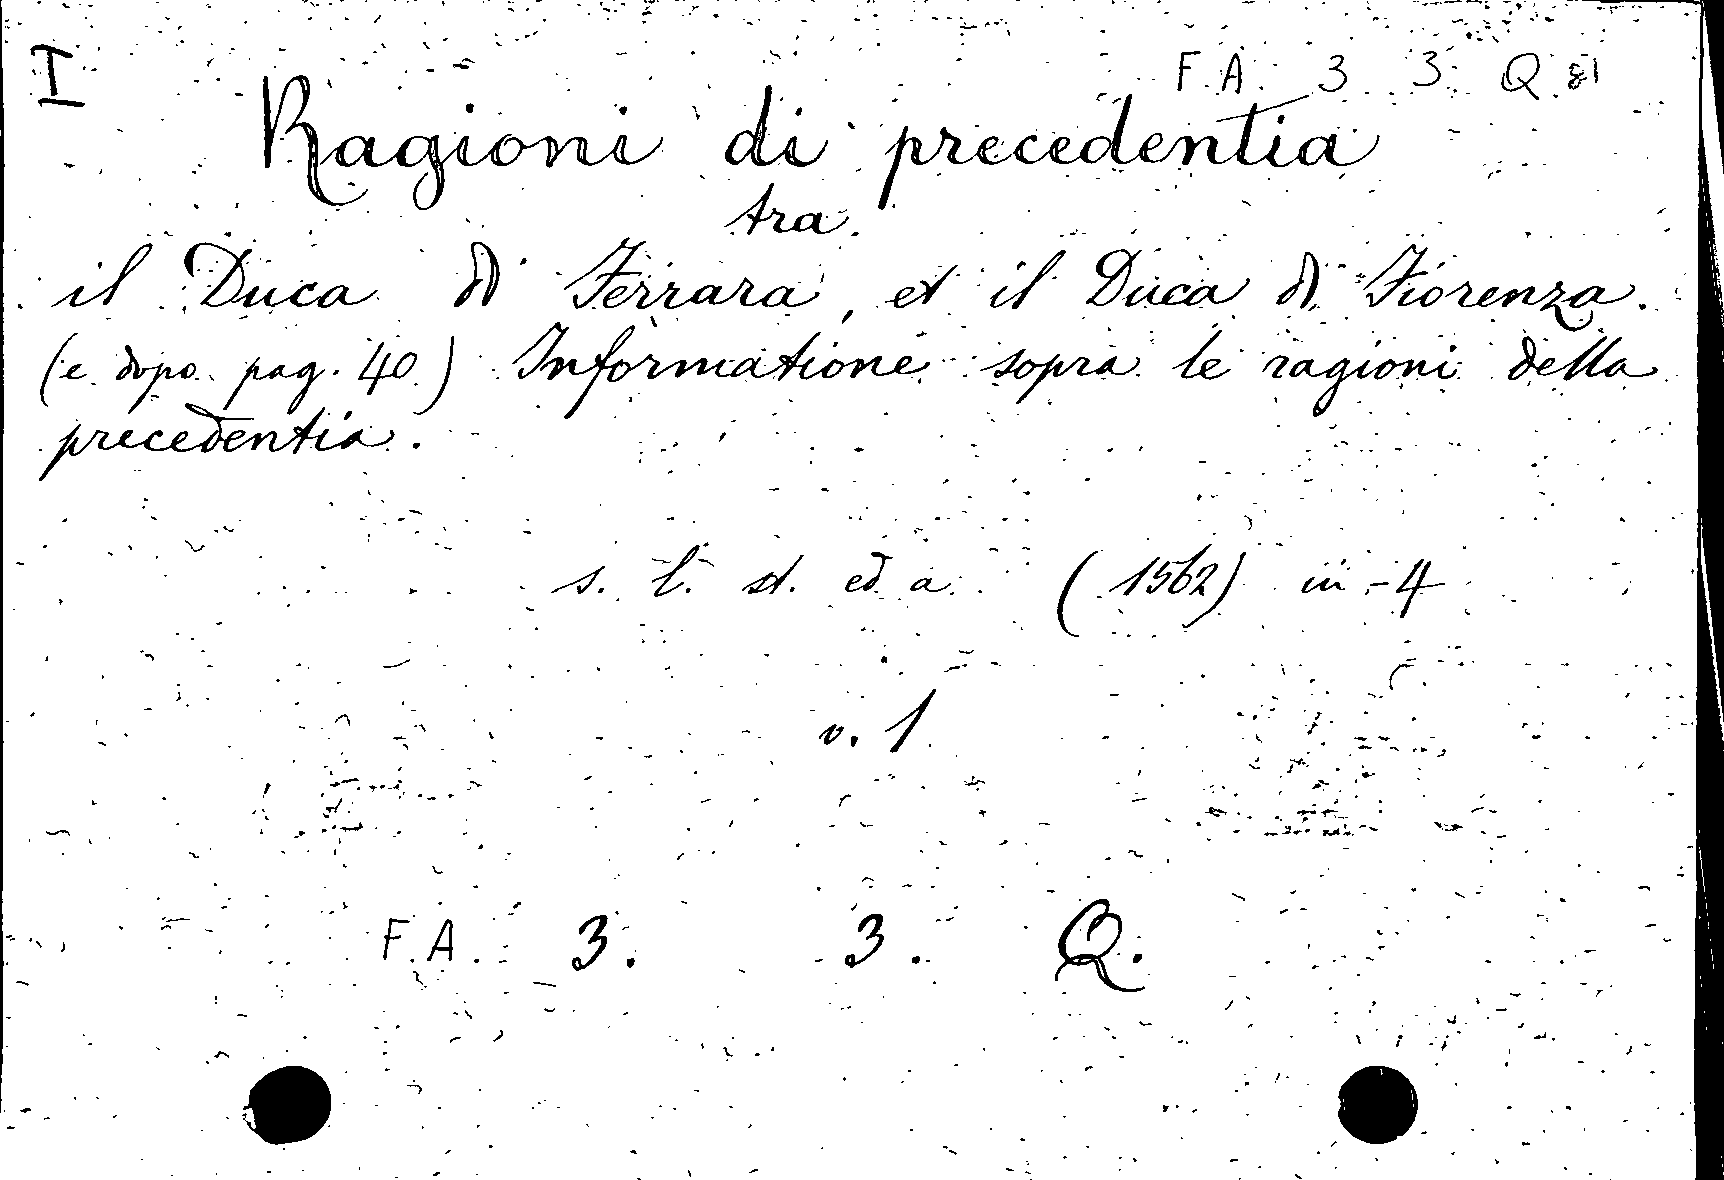 I
F. A. 3 3 Q 81
Ragioni di precedentia
tra
il Duca di Ferrara, et il Duca di Fiorenza.
(e dopo pag. 40) Informatione sopra le ragioni della
precedentia.
s. l. st. ed a. (1562) in-4
v. 1
F. A. 3. 3. Q.